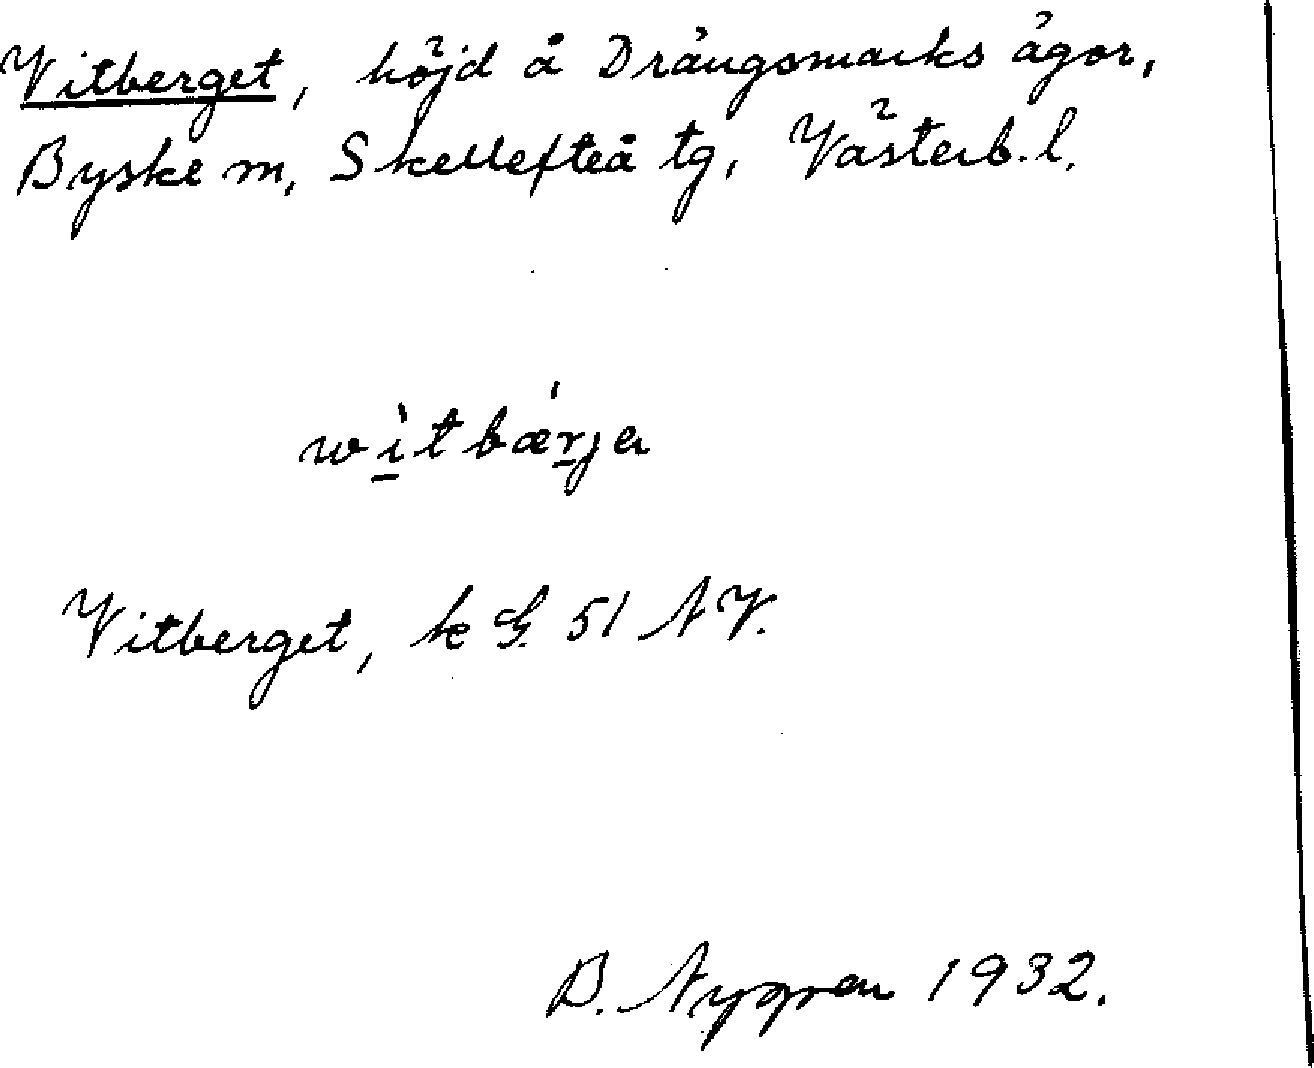 Vitberget, höjd å Drängsmarks ägor,
Byske m, Skellefteå tg, Västerb. l.
wìtbǽrja
Vitberget, k G. 51 NV.
B. Nygren 1932.